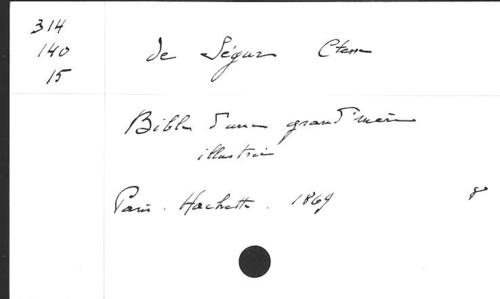 314
140
15
de Ségur Ctesse
Bible d'une grand'mère
illustrée
Paris. Hachette. 1869 8°